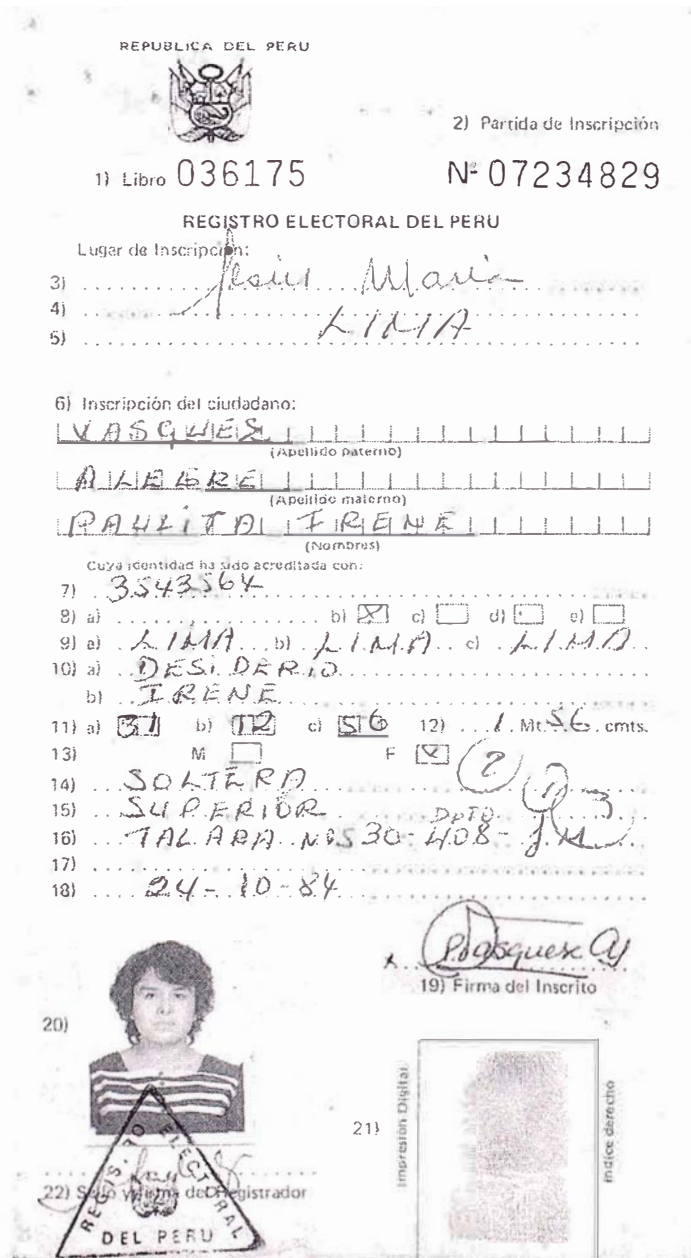 REPUBLICA DEL PERU
2) Partida de Inscripción
1) Libro 036175 Nº 07234829
REGISTRO ELECTORAL DEL PERU
Lugar de Inscripción:
3) Jesús María
4)
5) LIMA
6) Inscripción del ciudadano:
VASQUES
(Apellido paterno)
ALEGRE
(Apellido materno)
PAULITA IRENE
(Nombres)
Cuya identidad ha sido acreditada con:
7) 3543564
8) a) b) X c) d) e)
9) a) LIMA b) LIMA c) LIMA
10) a) DESIDERIO
b) IRENE
11) a) 31 b) 12 c) 56 12) 1. Mt. 56. cmts.
13) M F X
14) SOLTERA 2
15) SUPERIOR DPTO 3
16) TALARA Nº 530-408-J.M.
17)
18) 24-10-84
19) Firma del Inscrito
20)
21) Impresión Digital
Indice derecho
22) Sello y firma del Registrador
REGIS. RO ELECTORAL
DEL PERU